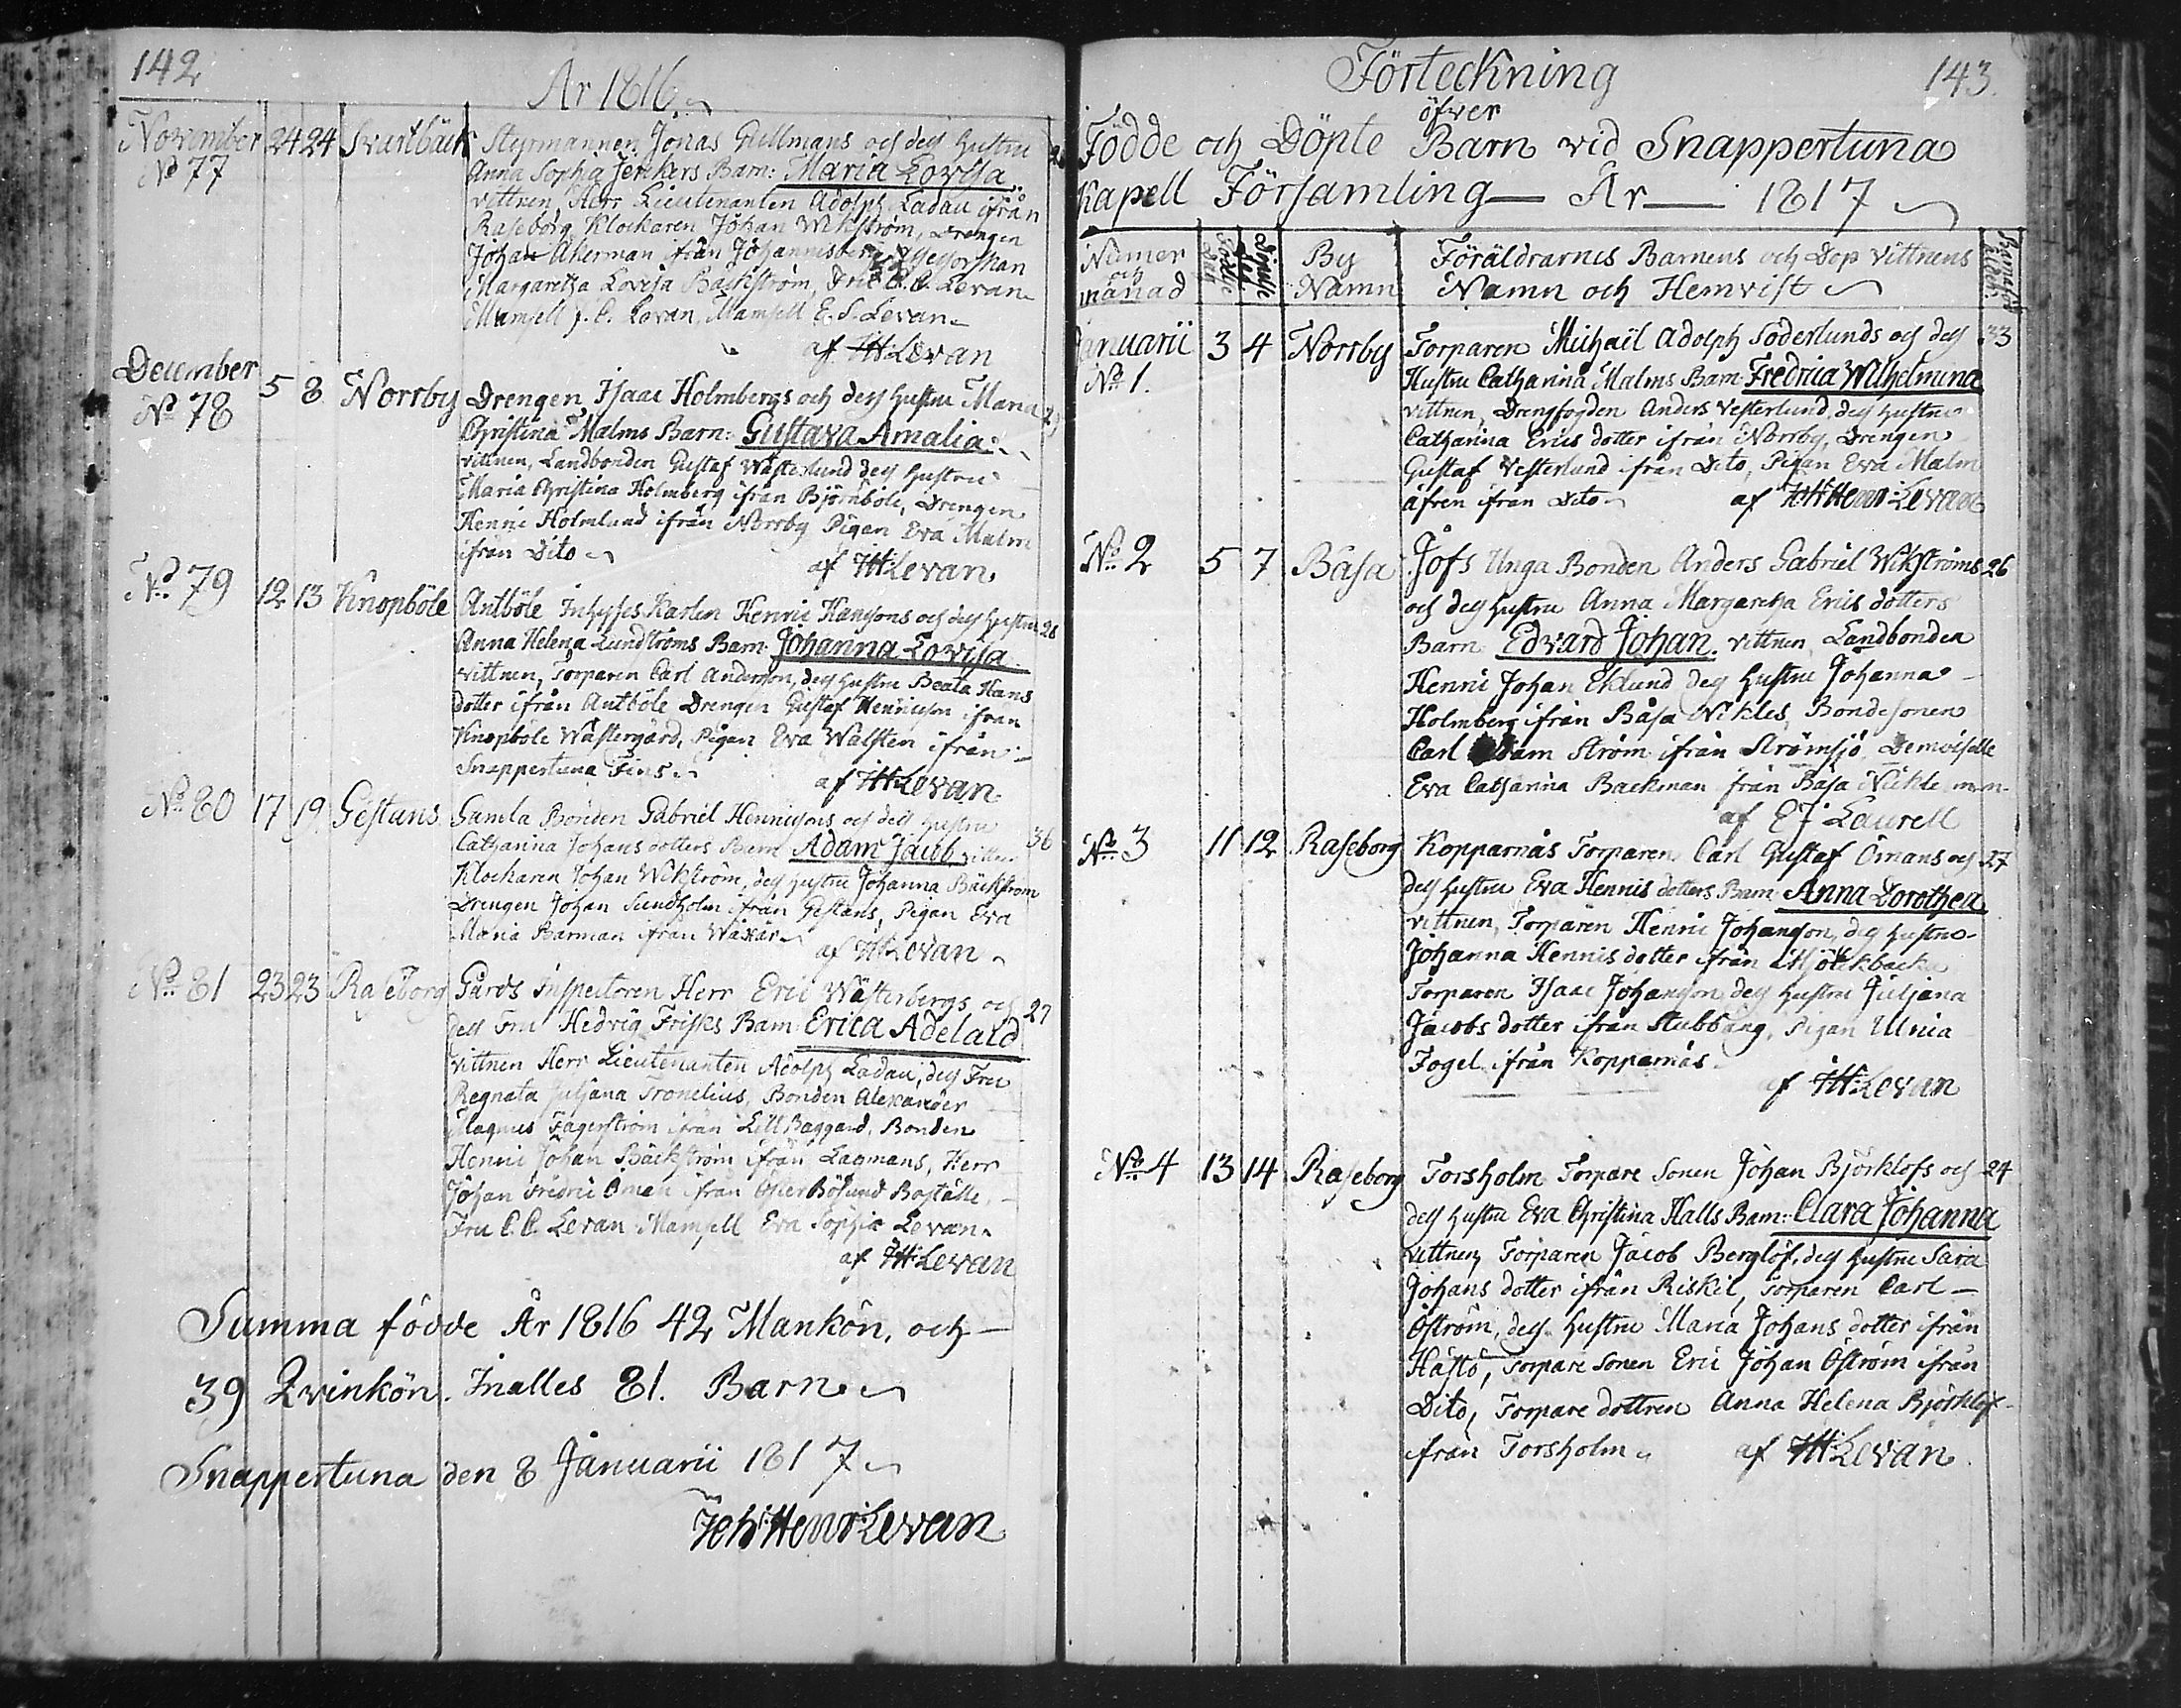 142
År 1816
November 24 24 Svartbäck Styrmannen Jonas Gullmans och dess hustru
No 77 Anna Sophia Jerkers Barn: Maria Lovisa
vittnen, Herr Lieutenanten Adolph Ladau ifrån
Raseborg, Klockaren Johan Wikström, Drengen
Johan Åkerman från Johannisberg,
Margaretha Lovisa Bäckström, Fru C.C. Levan
Mamsell J. C. Levan, Mamsell E. S. Levan
af JH Levan
December
No 78 5 8 Norrby Drengen Isaac Holmbergs och dess hustru Maria
Christina Malms Barn: Gustava Amalia
vittnen, Landbonden Gustaf Wästerlund dess hustru
Maria Christina Holmberg ifrån Björnböle, Drengen
Henric Holmlund ifrån Norrby Pigan Eva Malm
ifrån Dito af JH Levan
No 79 12 13 Knopböle Antböle Inhyses Karlen Henric Hansons och dess hustru 28
Anna Helena Lundströms Barn Johanna Lovisa
vittnen, Torparen Carl Anderson, dess hustru Beata Hans
dotter ifrån Antböle Drengen Gustaf Henricson ifrån
Knopböle Wästergård, Pigan Eva Walsten ifrån
Snappertuna Fins
af JH Levan
No 80 17 19 Gestans Gamla Bonden Gabriel Henricsons och dess hustru
Catharina Johans dotters Barn Adam Jacob vittnen 36
Klockaren Johan Wikström, dess hustru Johanna Bäckström
Drengen Johan Sundholm ifrån Gestans, Pigan Eva
Maria Barman ifrån Wäxär
af JH Levan
No 81 23 23 Raseborg Gårds Inspectoren Herr Eric Wästerbergs och 27
dess Fru Hedvig Frisks Barn: Erica Adelaid
vittnen Herr Lieutenanten Adolph Ladau, dess Fru
Regnata Juliana Tronelius, Bonden Alexander
Magnus Fagerström ifrån Lill Baggard, Bonden
Henric Johan Bäckström ifrån Lagmans, Herr
Johan Fredric Öman ifrån Öster Bösund Boställe,
Fru C.C. Levan Mamsell Eva Sophia Levan.
af JH Levan
Summa födde År 1816 42 Mankön, och
39 Qvinkön. Inalles 81. Barn
Snappertuna den 8 Januarii 1817
Joh: Henr: Levan
Förteckning 143.
öfver
Födde och Döpte Barn vid Snappertuna
Kapell Församling — År — 1817
Numer och månad Födde dag Döpte dag By Namn Föräldrarnes Barnens och Dop Vittnens Namn och Hemvist
Januarii 3 4 Norrby Torparen Michaël Adolph Söderlunds och dess 33
No 1. Hustru Catharina Malms Barn: Fredrica Wilhelmina
vittnen, Drengfogden Anders Vesterlund, dess hustru
Catharina Erics dotter ifrån Norrby, Drengen
Gustaf Vesterlund ifrån Dito, Pigan Eva Malm
äfven ifrån Dito af Joh: Henr: Levan
No 2 5 7 Båsa Jofs Unga Bonden Anders Gabriel Wikströms 26
och dess hustru Anna Margaretha Erics dotters
Barn Edvard Johan. vittnen Landbonden
Henric Johan Eklund dess hustru Johanna
Holmberg ifrån Båsa Nikles, Bondesonen
Carl Adam Ström ifrån Strömsjö, Demoiselle
Eva Catharina Backman från Båsa Nickle
af EJ Laurell
No 3 11 12 Raseborg Kopparnäs Torparen Carl Gustaf Ömans och 27
dess hustru Eva Henrics dotters Barn Anna Dorothea
vittnen, Torparen Henric Johanson, dess hustru
Johanna Henrics dotter ifrån Mjölckbacka
Torparen Isaac Johanson, dess hustru Juliana
Jacobs dotter ifrån Stubbäng, Pigan Ulrica
Fogel ifrån Kopparnäs
af JH Levan
No 4 13 14 Raseborg Torsholm Torpare Sonen Johan Björklofs och 24
dess hustru Eva Christina Halls Barn: Clara Johanna
vittnen, Torparen Jacob Berglöf, dess hustru Sara
Johans dotter ifrån Riskil, Torparen Carl
Öström, dess hustru Maria Johans dotter ifrån
Hästö, Torpare Sonen Eric Johan Öström ifrån
Dito, Torpare dottren Anna Helena Björklöf
ifrån Torsholm af JH Levan